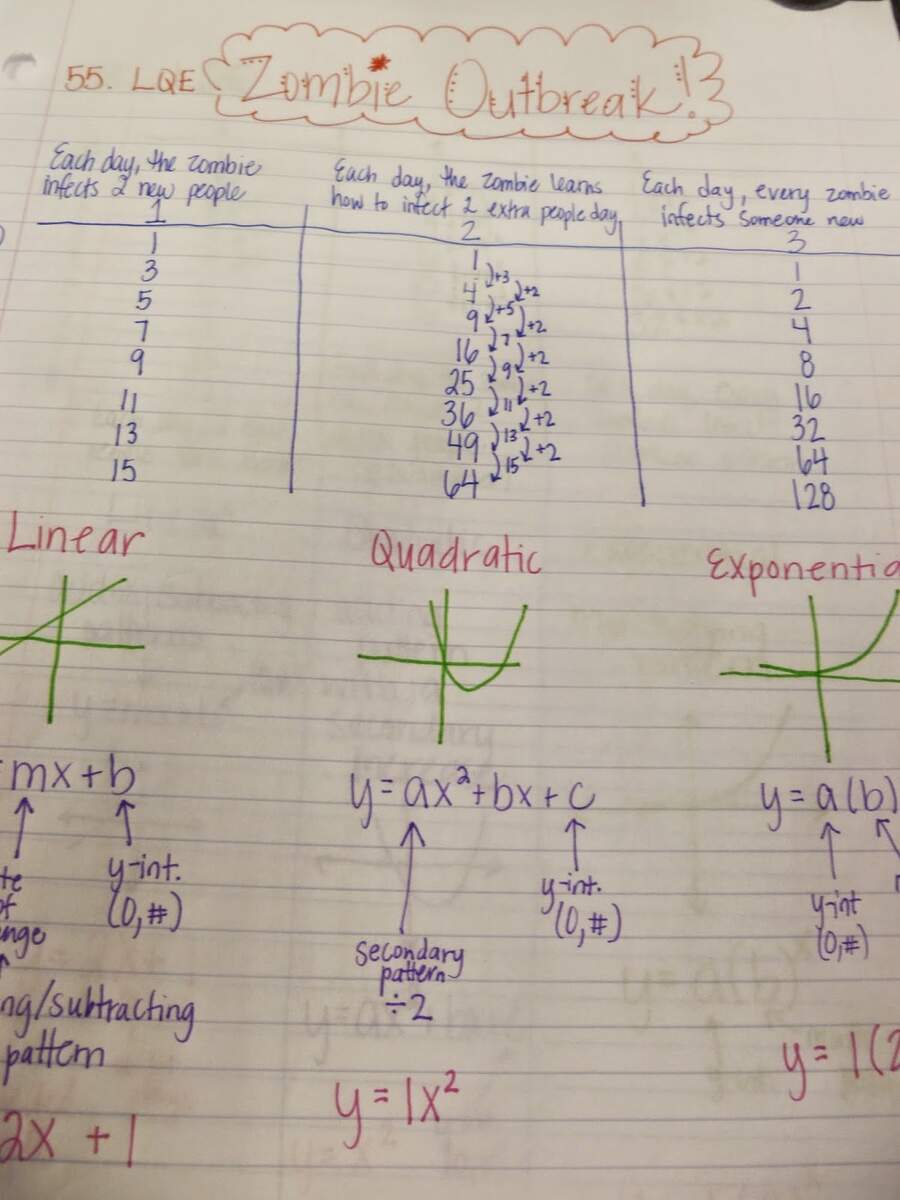 55. LQE Zombie Outbreak!
Each day, the zombie
infects 2 new people
1
1
3
5
7
9
11
13
15
Each day, the zombie learns
how to infect 2 extra people day
2
1
4
9
16
25
36
49
64
+3
+5
7
9
11
13
15
+2
+2
+2
+2
+2
+2
Each day, every zombie
infects someone new
3
1
2
4
8
16
32
64
128
Linear
mx+b
y-int.
(0,#)
pattern
2x + 1
Quadratic
y=ax²+bx+c
y-int.
(0,#)
secondary
pattern
÷2
y=1x²
y=a(b)
y-int
(0,#)
y=1(2